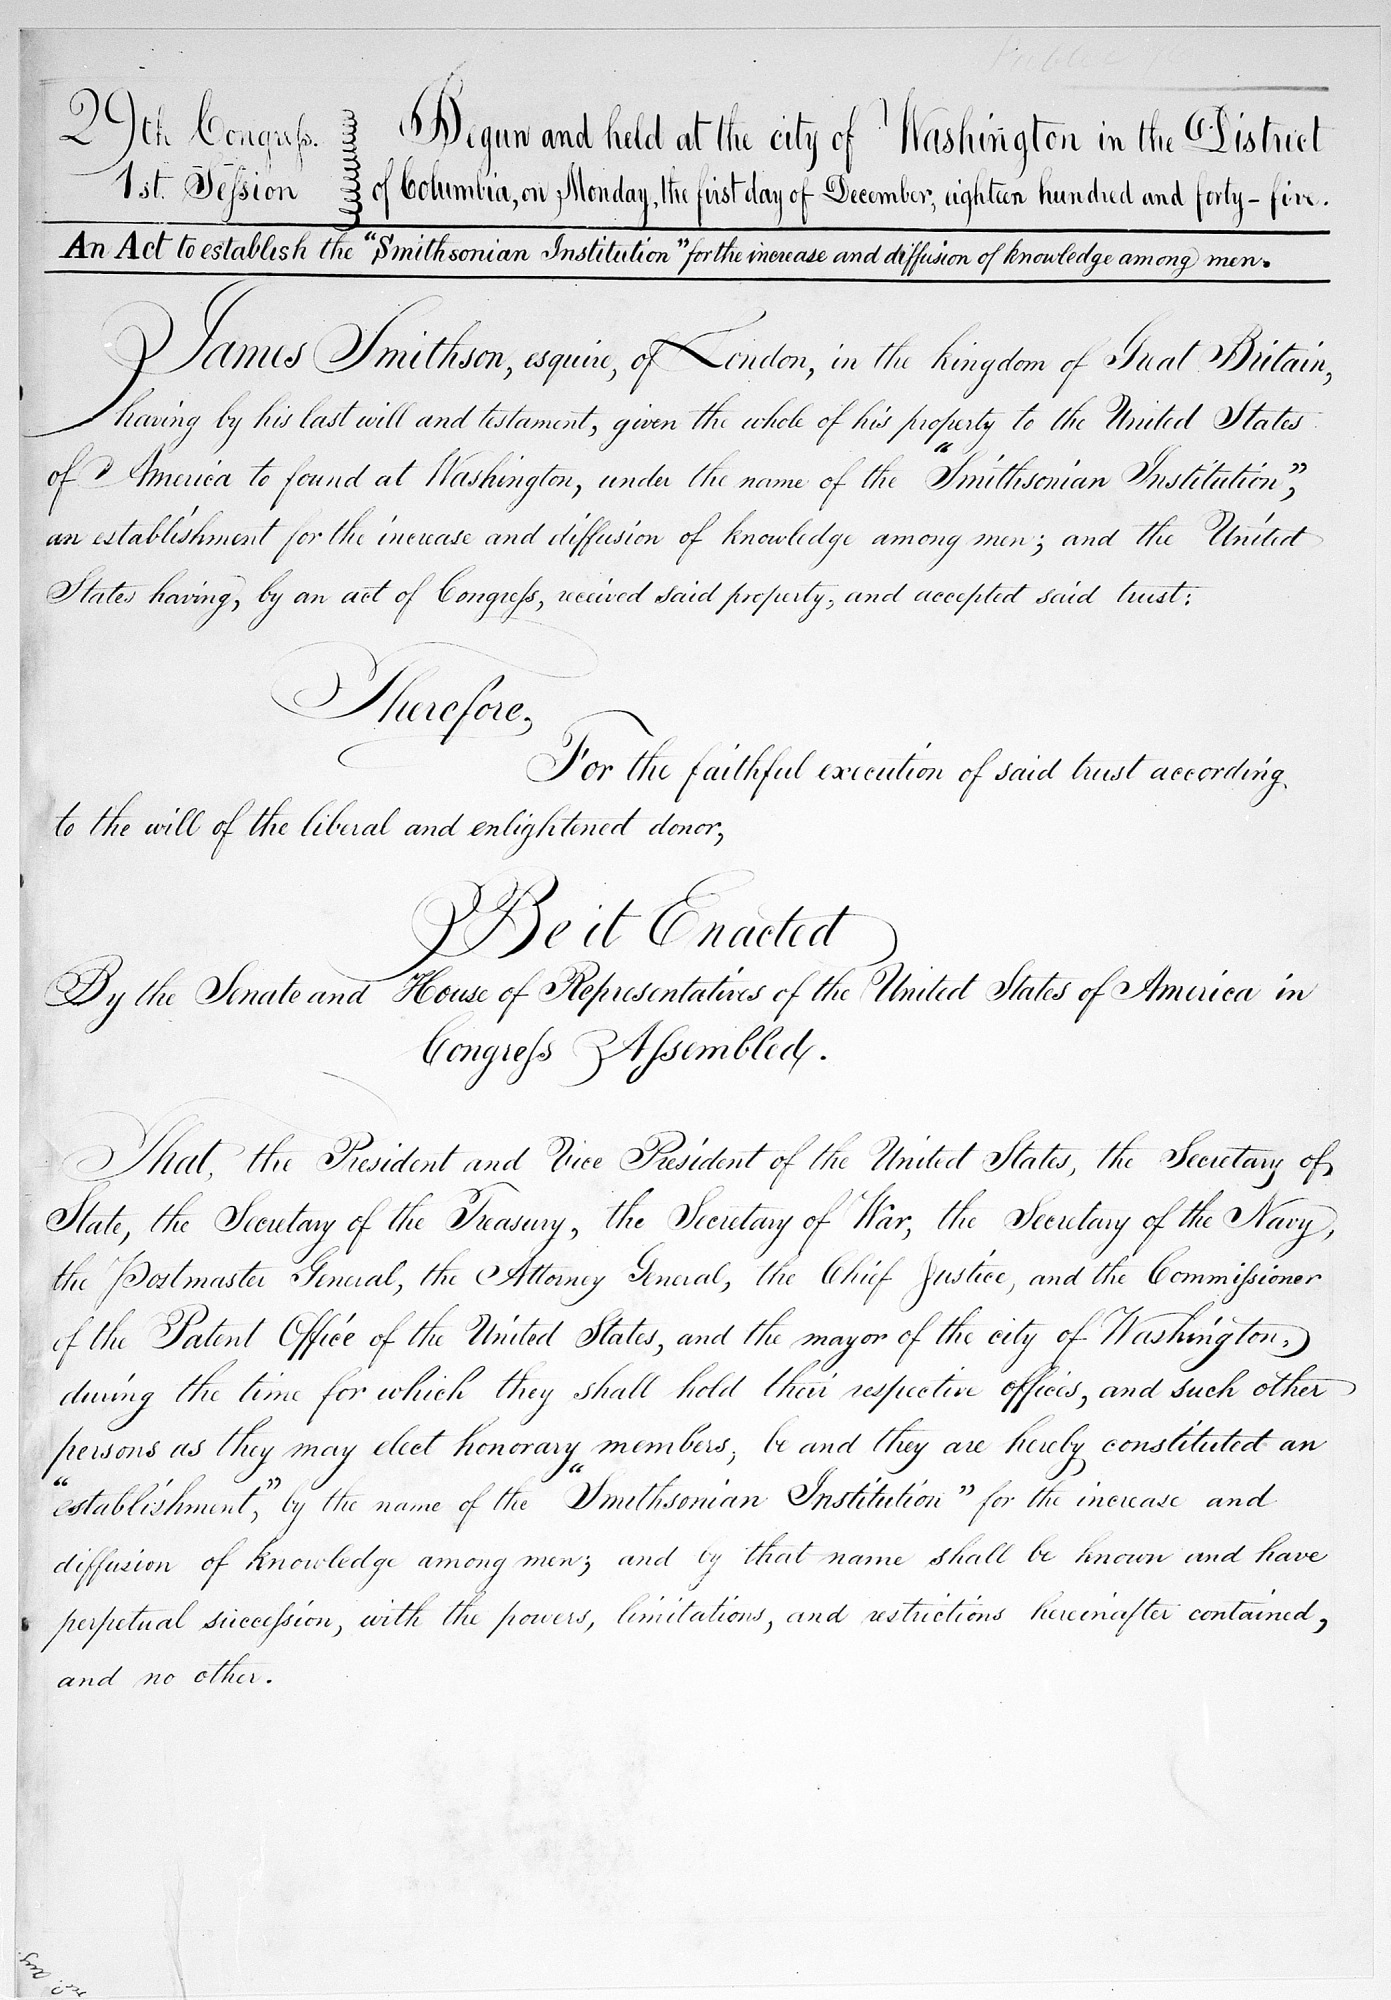 29th Congress.
1st. Session
Begun and held at the city of Washington in the District
of Columbia, on Monday, the first day of December, eighteen hundred and forty-five.
An Act to establish the "Smithsonian Institution" for the increase and diffusion of knowledge among men.
James Smithson, esquire, of London, in the kingdom of Great Britain,
having by his last will and testament, given the whole of his property to the United States
of America to found at Washington, under the name of the "Smithsonian Institution",
an establishment for the increase and diffusion of knowledge among men; and the United
States having, by an act of Congress, received said property, and accepted said trust:
Therefore,
For the faithful execution of said trust according
to the will of the liberal and enlightened donor,
Be it Enacted
By the Senate and House of Representatives of the United States of America in
Congress Assembled.
That, the President and Vice President of the United States, the Secretary of
State, the Secretary of the Treasury, the Secretary of War, the Secretary of the Navy,
the Postmaster General, the Attorney General, the Chief Justice, and the Commissioner
of the Patent Office of the United States, and the mayor of the city of Washington,
during the time for which they shall hold their respective offices, and such other
persons as they may elect honorary members, be and they are hereby constituted an
"establishment," by the name of the "Smithsonian Institution" for the increase and
diffusion of knowledge among men; and by that name shall be known and have
perpetual succession, with the powers, limitations, and restrictions hereinafter contained,
and no other.